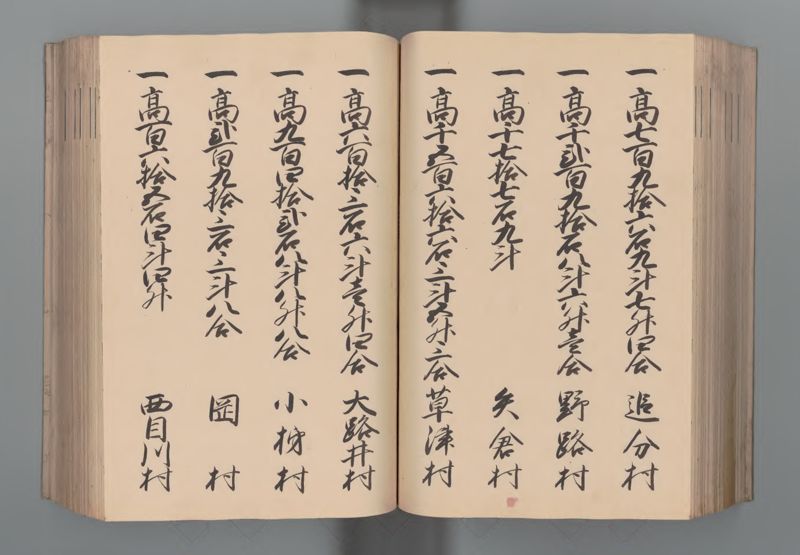 一高七百九拾六石九斗七升四合 追分村
一高千弐百九拾石八斗六升壱合 野路村
一高千七拾七石九斗 矢倉村
一高千五百六拾六石三斗五升三合 草津村
一高六百拾三石六斗壱升四合 大路井村
一高九百四拾弐石八斗八升八合 小柿村
一高弐百九拾三石三斗八合 岡村
一高百六拾五石四斗四升 西目川村